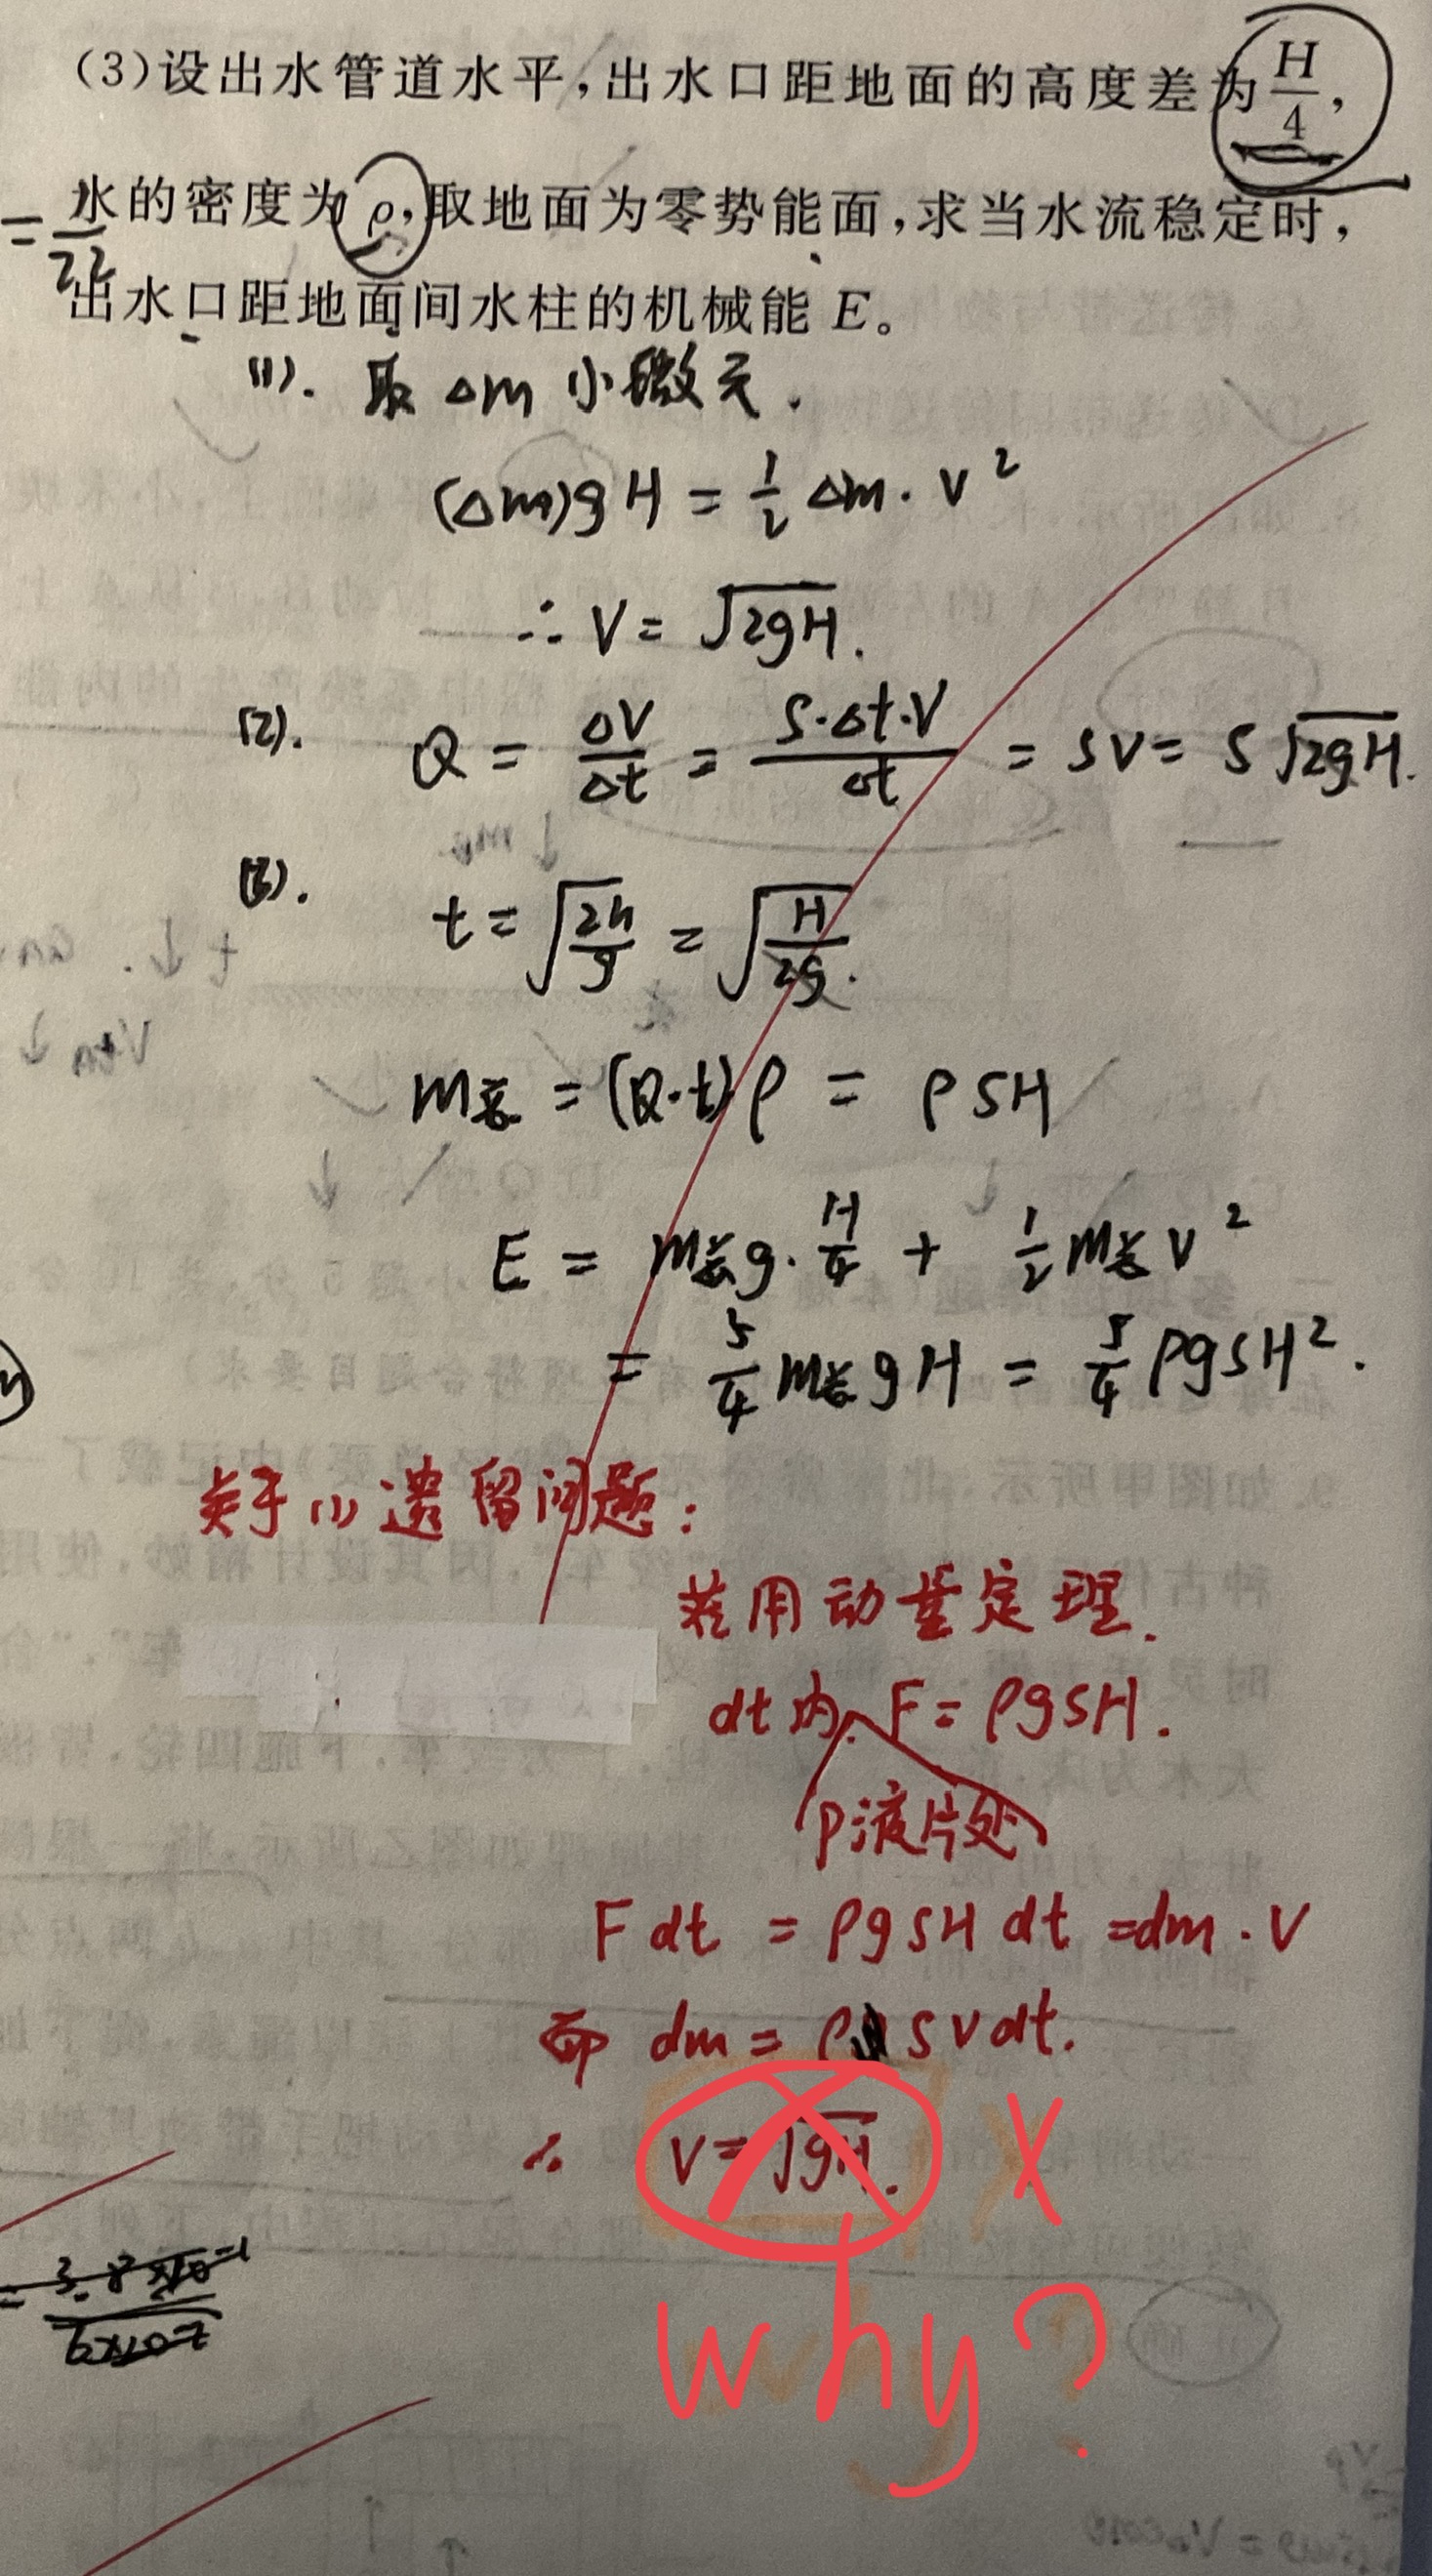 (3)设出水管道水平,出水口距地面的高度差为H/4,
水的密度为ρ,取地面为零势能面,求当水流稳定时,
出水口距地面间水柱的机械能 E。
(1). 取 Δm 小微元.
(Δm)gH = 1/2 Δm·v²
∴ V = √2gH.
(2). Q = ΔV/Δt = S·Δt·V/Δt = SV = S√2gH.
(3). t = √2h/g = √H/2g.
m总 = (Q·t)ρ = ρSH
E = m总g·H/4 + 1/2 m总v²
= 5/4 m总gH = 5/4 ρgSH².
关于(1)遗留问题:
若用动量定理.
dt内. F = ρgSH.
P液片处
Fdt = ρgSH dt = dm·V
而 dm = ρSvdt.
∴ V = √gH. X
why?
= 3.8×10⁻¹/6×10⁻²